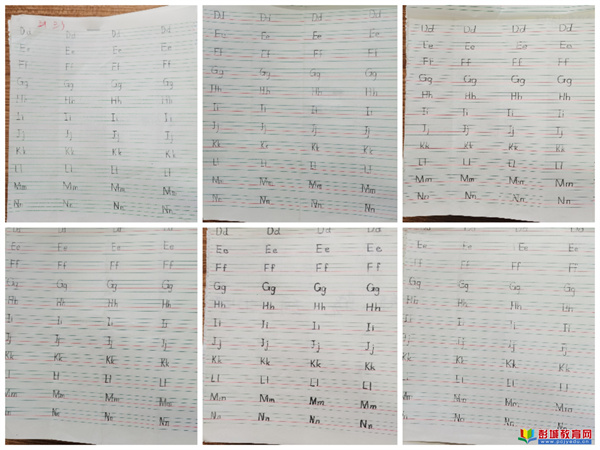 Dd Dd Dd Dd
Ee Ee Ee Ee
Ff Ff Ff Ff
Gg Gg Gg Gg
Hh Hh Hh Hh
Ii Ii Ii Ii
Jj Jj Jj Jj
Kk Kk Kk Kk
Ll Ll Ll Ll
Mm Mm Mm Mm
Nn Nn Nn Nn
Dd Dd Dd Dd
Ee Ee Ee Ee
Ff Ff Ff Ff
Gg Gg Gg Gg
Hh Hh Hh Hh
Ii Ii Ii Ii
Jj Jj Jj Jj
Kk Kk Kk Kk
Ll Ll Ll Ll
Mm Mm Mm Mm
Nn Nn Nn Nn
Dd Dd Dd Dd
Ee Ee Ee Ee
Ff Ff Ff Ff
Gg Gg Gg Gg
Hh Hh Hh Hh
Ii Ii Ii Ii
Jj Jj Jj Jj
Kk Kk Kk Kk
Ll Ll Ll Ll
Mm Mm Mm Mm
Nn Nn Nn Nn
Dd Dd Dd
Ee Ee Ee Ee
Ff Ff Ff Ff
Gg Gg Gg Gg
Hh Hh Hh Hh
Ii Ii Ii Ii
Jj Jj Jj Jj
Kk Kk Kk Kk
Ll Ll Ll
Mm Mm Mm Mm
Nn Nn Nn
Dd Dd Dd Dd
Ee Ee Ee Ee
Ff Ff Ff Ff
Gg Gg Gg Gg
Hh Hh Hh Hh
Ii Ii Ii Ii
Jj Jj Jj Jj
Kk Kk Kk Kk
Ll Ll Ll Ll
Mm Mm Mm Mm
Nn Nn Nn Nn
Dd Dd Dd
Ee Ee Ee Ee
Ff Ff Ff Ff
Gg Gg Gg Gg
Hh Hh Hh Hh
Ii Ii Ii Ii
Jj Jj Jj Jj
Kk Kk Kk Kk
Ll Ll Ll Ll
Mm Mm Mm Mm
Nn Nn Nn Nn
彭城教育网
www.pcjyw.com